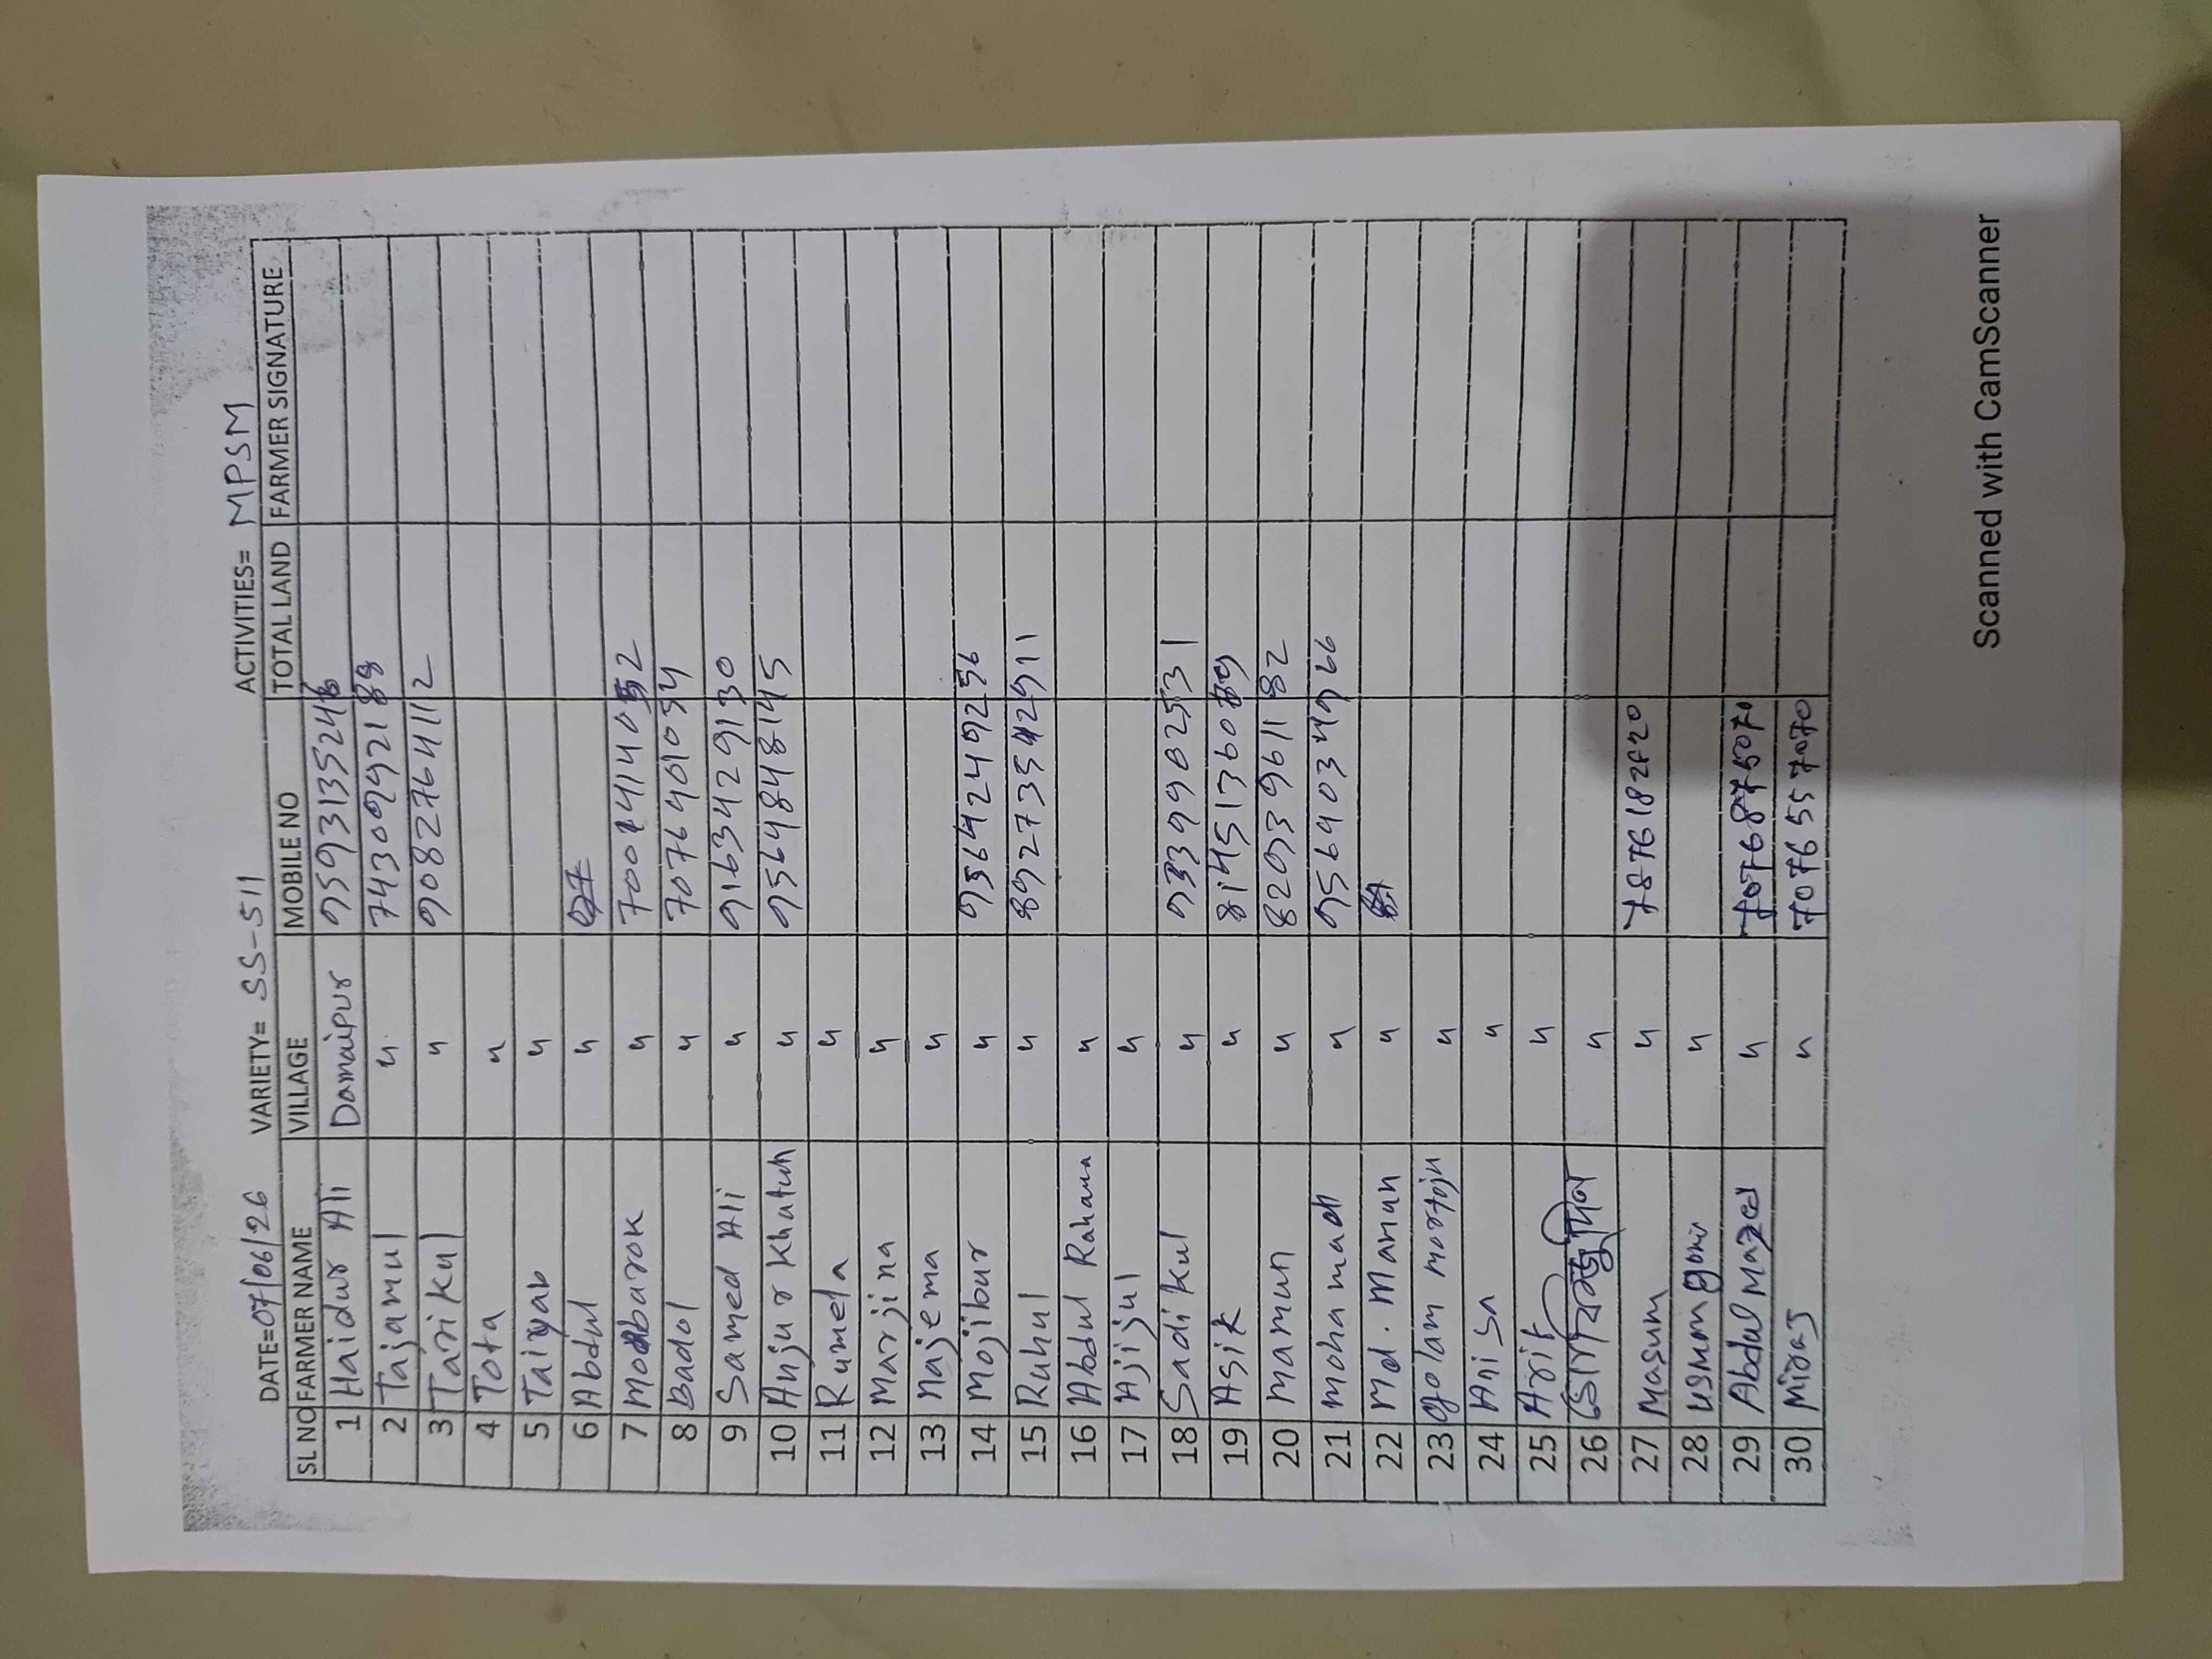 DATE=07/06/26 VARIETY= SS-511 ACTIVITIES= MPSM
SL NO FARMER NAME VILLAGE MOBILE NO TOTAL LAND FARMER SIGNATURE
1 Haidur Ali Damaipur
2 Tajamul " 7430992188
3 Tarikul " 9082764112
4 Tota "
5 Taiyab "
6 Abdul "
7 Mobarok "
8 Badol " 7076401054
9 Samed Ali " 9163429130
10 Anjur Khatun " 9564848145
11 Rumela "
12 Marjina "
13 Najema "
14 Mojibur " 9564249256
15 Ruhul " 8927354291
16 Abdul Rahama "
17 Ajijul "
18 Sadikul " 9339902531
19 Asik "
20 Mamun " 8293961182
21 Mohamad "
22 Md. Mamun "
23 golam mortoju "
24 Anisa "
25 Arif "
26 "
27 Masum "
28 usman goni "
29 Abdul Mazed "
30 Miraj " 7076557070
Scanned with CamScanner